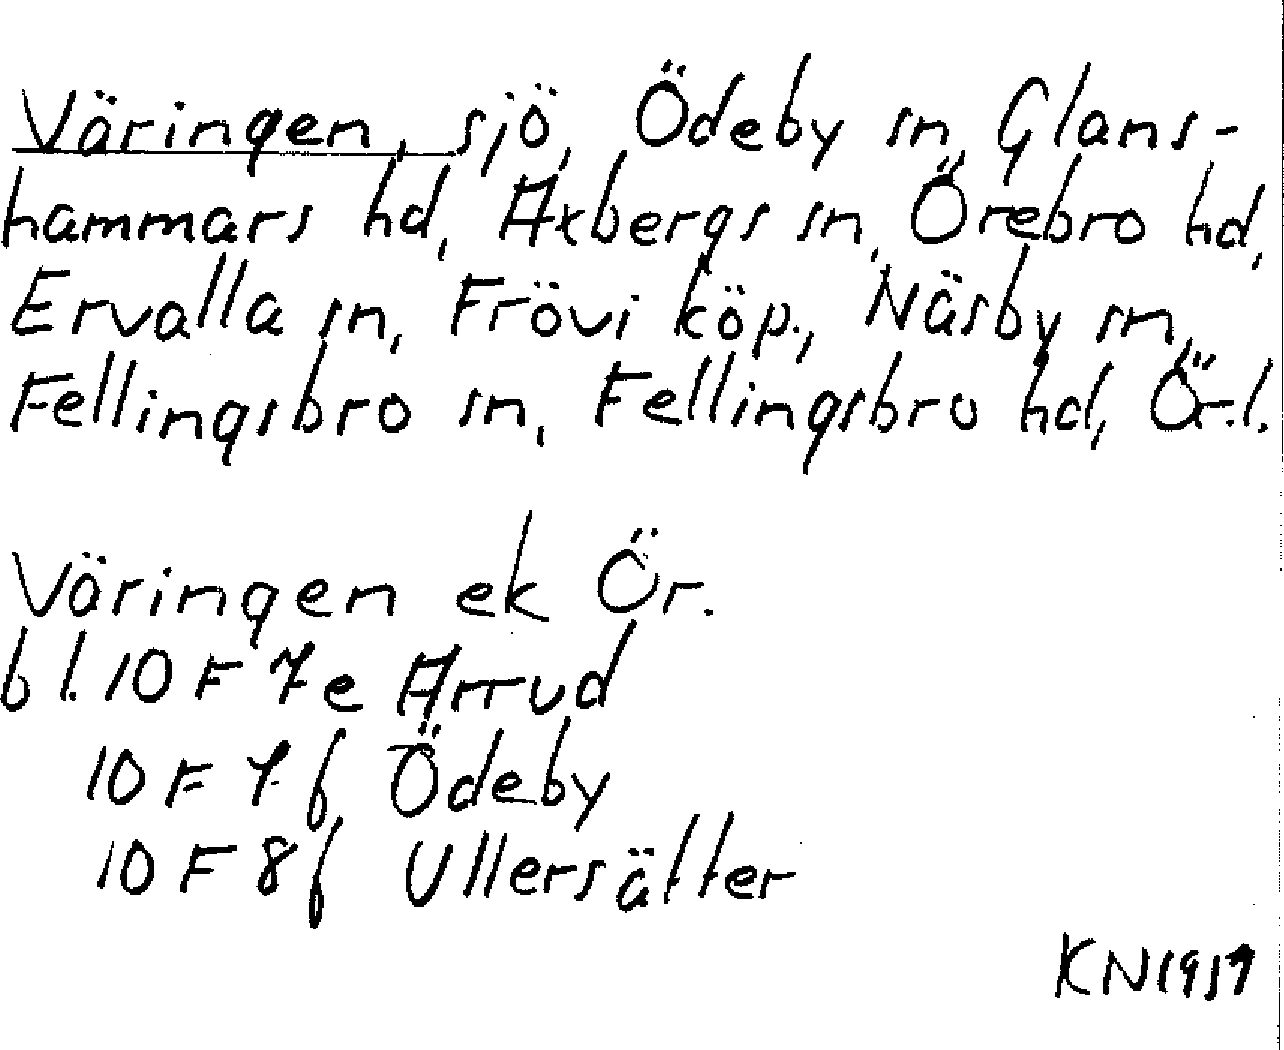 Väringen, sjö, Ödeby sn, Glans-
hammars hd, Axbergs sn, Örebro hd,
Ervalla sn, Frövi köp., Näsby sn,
Fellingsbro sn, Fellingsbro hd, Ör.l.
Väringen ek Ör.
bl. 10 F 7e Arrud
10 F 7f Ödeby
10 F 8f Ullersätter
KN